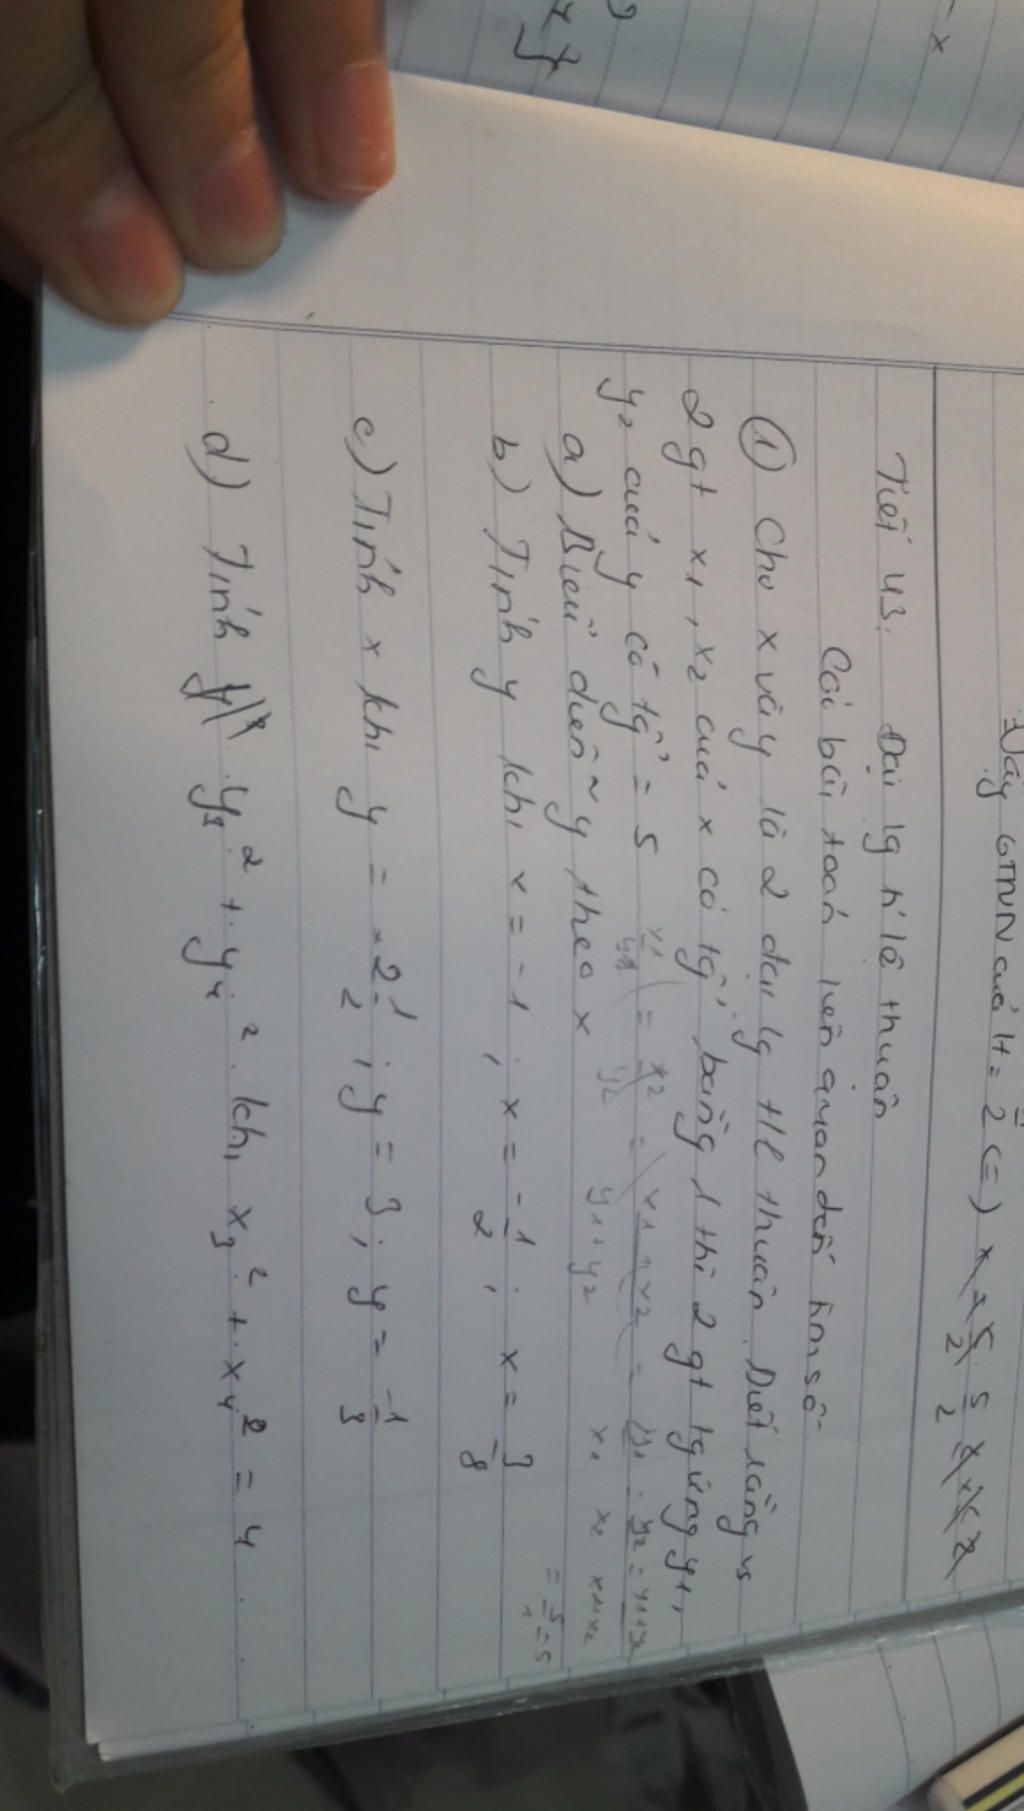 Dãy GTNN của H = 5/2 (=)
Tiết 43. Đại lg tỉ lệ thuận
Các bài toán liên quan đến hàm số
① Cho x và y là 2 đại lg tlệ thuận. Biết rằng vs
2 gt x1, x2 của x có tg bằng 1 thì 2 gt tg ứng y1,
y2 của y có tg = 5
x1/y1 = x2/y2 = x1+x2/y1+y2 = y1/x1 = y2/x2 = y1+y2/x1+x2
= 5/1 = 5
a) Biểu diễn y theo x
b) Tính y khi x = -1 ; x = -1/2 ; x = 3/8
c) Tính x khi y = -2 1/2 ; y = 3 ; y = -1/3
d) Tính y3² + y4² khi x3² + x4² = 4